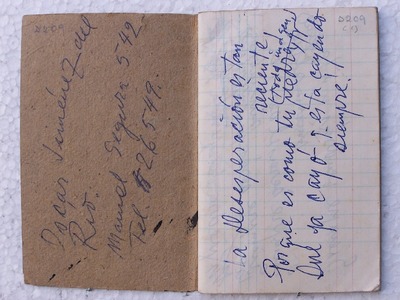 2209
Oscar Jiménez del
Río.
Manuel Segura 542
Tel. 826549.
2209
(1)
La desesperación es tan
reciente,
toda imagen
Porque es como tu
Que ya cayó y está cayendo
siempre!